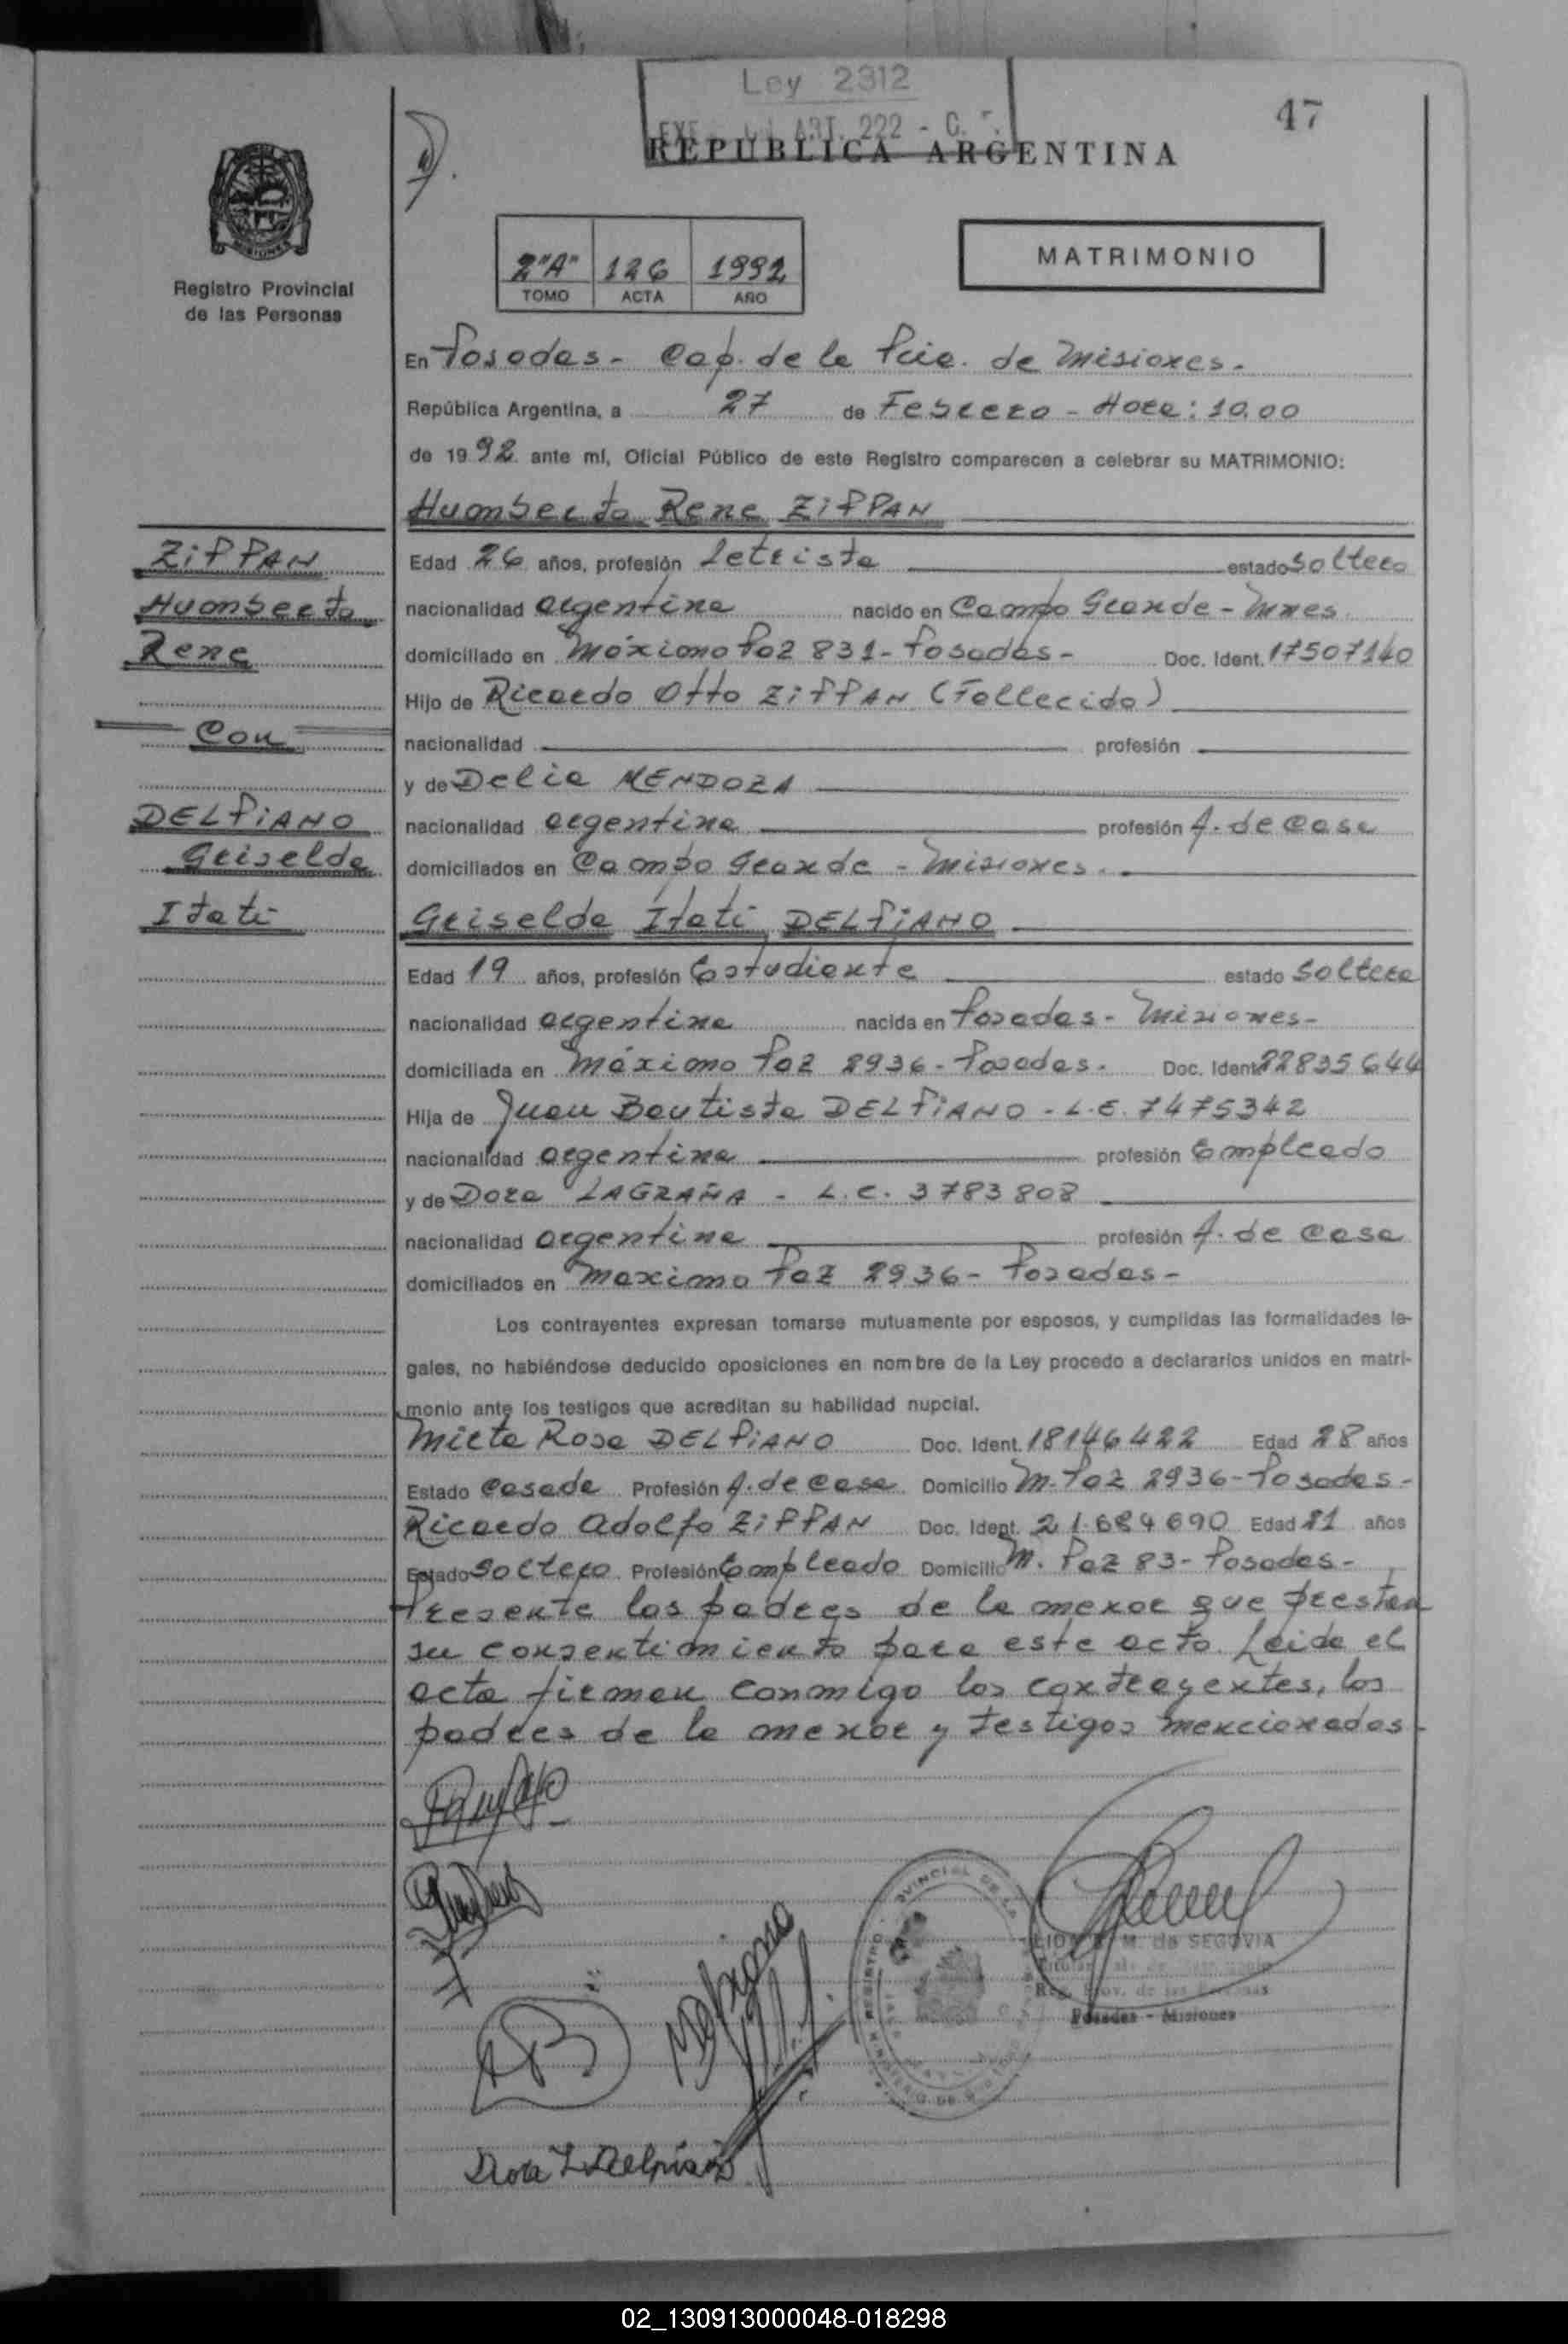 Ley 2312
ART. 222 - C. F.
47
REPUBLICA ARGENTINA
MISIONES
Registro Provincial
de las Personas
2"A" 126 1992
TOMO ACTA AÑO
MATRIMONIO
En Posadas - Cap. de la Pcia. de Misiones.
República Argentina, a 27 de Febrero - Hora: 10.00
de 1992 ante mí, Oficial Público de este Registro comparecen a celebrar su MATRIMONIO:
Humberto Rene ZiPPAN
ZiPPAN
Humberto
Rene
Con
DELPiANO
Griselda
Itati
Edad 26 años, profesión Letrista estado soltero
nacionalidad argentina nacido en Campo Grande - Mnes
domiciliado en Máximo Paz 831 - Posadas - Doc. Ident. 17507140
Hijo de Ricardo Otto ZiPPAN (Fallecido)
nacionalidad profesión
y de Delia MENDOZA
nacionalidad argentina profesión A. de casa
domiciliados en Campo Grande - Misiones.
Griselda Itati DELPiANO
Edad 19 años, profesión Estudiante estado soltera
nacionalidad argentina nacida en Posadas - Misiones -
domiciliada en Máximo Paz 2936 - Posadas. Doc. Ident. 22835644
Hija de Juan Bautista DELPiANO - L.E. 7475342
nacionalidad argentina profesión Empleado
y de Dora LAGRAÑA - L.C. 3783808
nacionalidad argentina profesión A. de casa
domiciliados en Maximo Paz 2936 - Posadas -
Los contrayentes expresan tomarse mutuamente por esposos, y cumplidas las formalidades le-
gales, no habiéndose deducido oposiciones en nombre de la Ley procedo a declararlos unidos en matri-
monio ante los testigos que acreditan su habilidad nupcial.
Mirta Rosa DELPiANO Doc. Ident. 18146422 Edad 28 años
Estado casada Profesión A. de casa Domicilio M. Paz 2936 - Posadas -
Ricardo Adolfo ZiPPAN Doc. Ident. 21.684690 Edad 21 años
Estado soltero Profesión Empleado Domicilio M. Paz 83 - Posadas -
Presente los padres de la menor que prestan
su consentimiento para este acto. Leida el
acta firman conmigo los contrayentes, los
padres de la menor y testigos mencionados -
M. de SEGOVIA
Posadas - Misiones
Dora L Delpiano
02_130913000048-018298